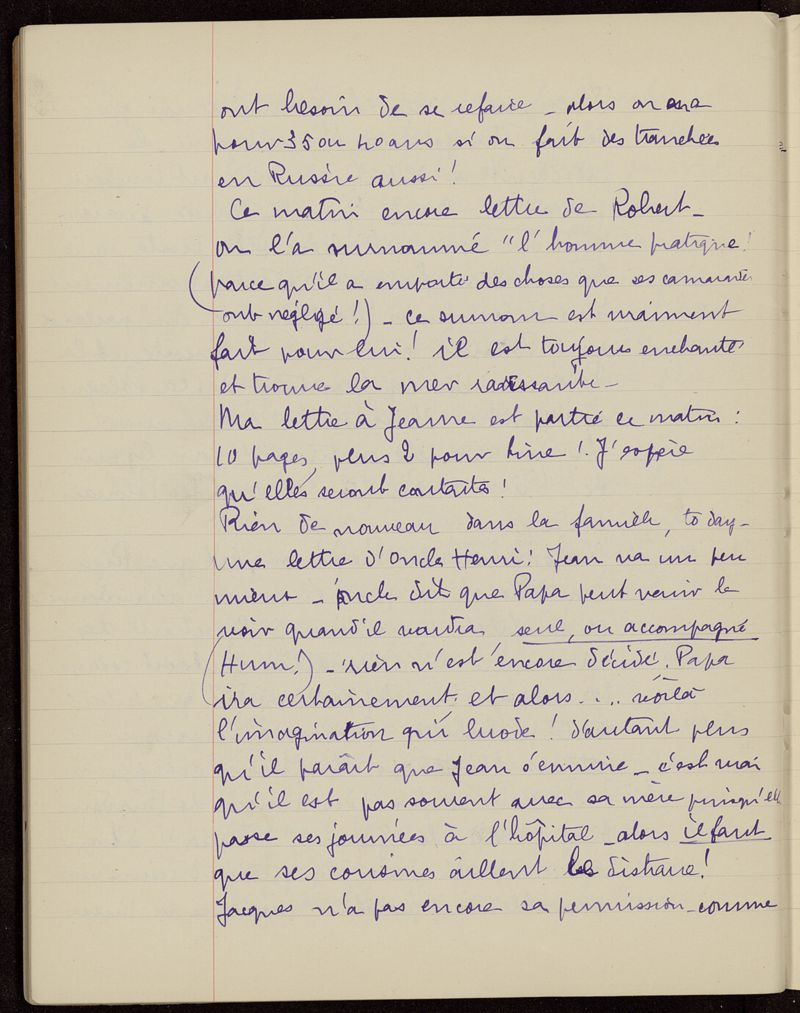 ont besoin de se refaire _ alors on en a
pour 35 ou 40 ans si on fait des tranchées
en Russie aussi !
Ce matin encore lettre de Robert _
on l'a surnommé "l'homme pratique !
(parce qu'il a emporté des choses que ses camarades
ont négligé !) _ ce surnom est vraiment
fait pour lui ! il est toujours enchanté
et trouve la mer ravissante _
Ma lettre à Jeanne est partie ce matin :
10 pages, plus 2 pour Line ! J'espère
qu'elles seront contentes !
Rien de nouveau dans la famille, to day _
une lettre d'Oncle Henri ! Jean va un peu
mieux _ oncle dit que Papa peut venir le
voir quand il voudra seul, ou accompagné
(Hum !) _ rien n'est encore décidé. Papa
ira certainement, et alors .... voilà
l'imagination qui brode ! d'autant plus
qu'il paraît que Jean s'ennuie _ c'est vrai
qu'il est pas souvent avec sa mère puisqu'elle
passe ses journées à l'hôpital _ alors il faut
que ses cousines aillent le distraire !
Jacques n'a pas encore sa permission _ comme